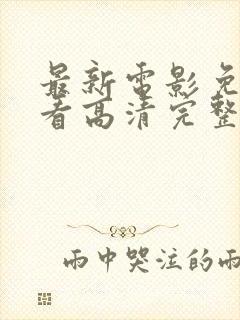 最新電影免
看高清完整
雨中哭注的雨